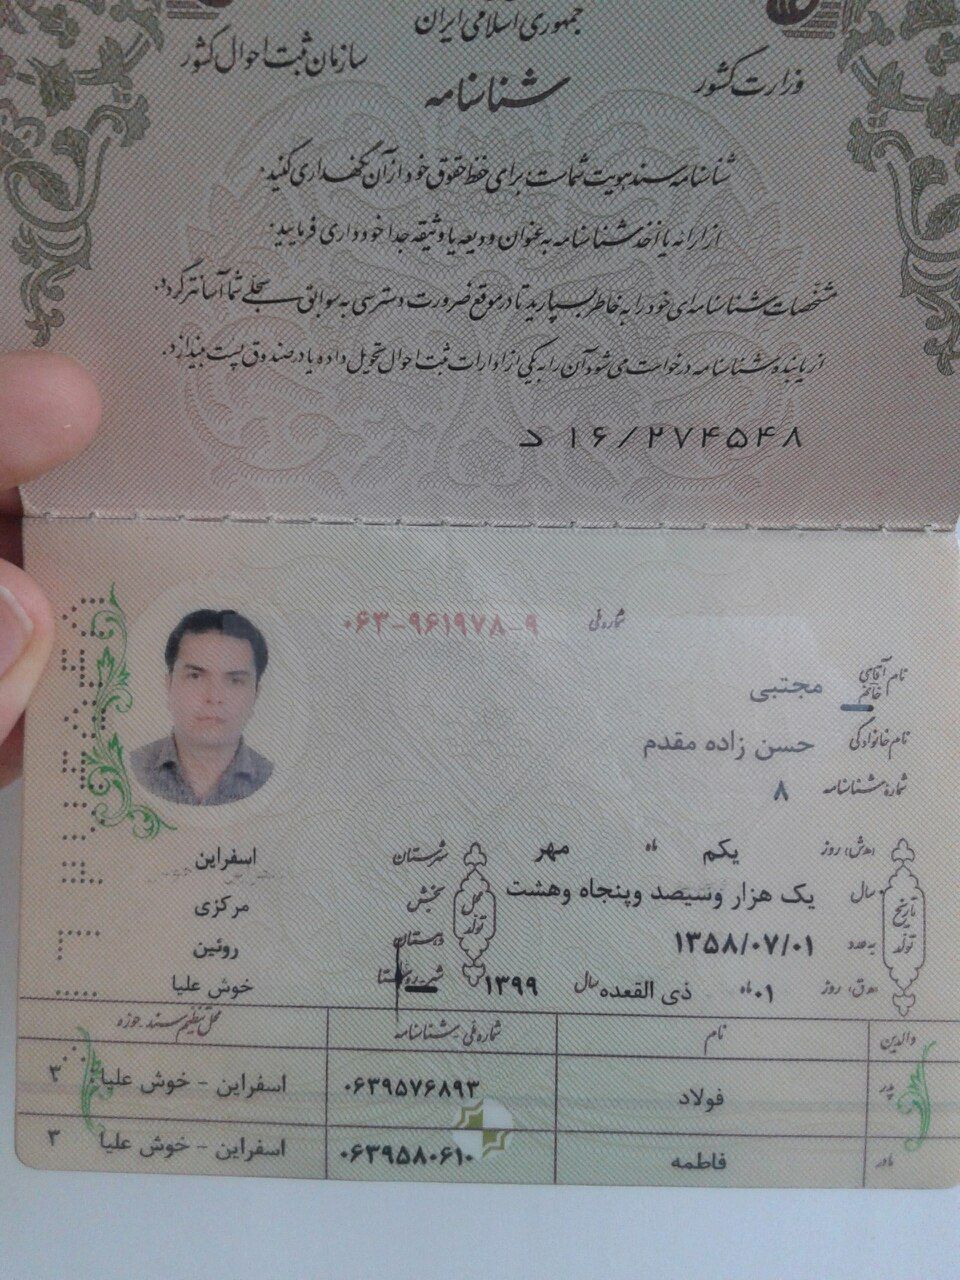 جمهوری اسلامی ایران
وزارت کشور
سازمان ثبت احوال کشور
شناسنامه
شناسنامه سند هویت شماست برای حفظ حقوق خود از آن نگهداری کنید.
از ارائه یا اخذ شناسنامه به عنوان ودیعه یا وثیقه جدا خودداری فرمایید.
مشخصات شناسنامه‌ای خود را به خاطر بسپارید تا در موقع ضرورت دسترسی به سوابق سجلی شما آسانتر گردد.
از یابنده شناسنامه درخواست می‌شود آن را به یکی از ادارات ثبت احوال تحویل داده یا در صندوق پست بیندازد.
د ۱۶/۲۷۴۵۴۸
شماره ملی ۰۶۳-۹۶۱۹۷۸-۹
نام آقای خانم مجتبی
نام خانوادگی حسن زاده مقدم
شماره شناسنامه ۸
تاریخ تولد
(ه.ش) روز یکم ماه مهر
سال یک هزار وسیصد وپنجاه وهشت
به عدد ۱۳۵۸/۰۷/۰۱
(ه.ق) روز ۰۱ ماه ذی القعده سال ۱۳۹۹
محل تولد
شهرستان اسفراین
بخش مرکزی
دهستان روئین
شهر-روستا خوش علیا
والدین نام شماره ملی-شناسنامه محل تنظیم سند حوزه
پدر فولاد ۰۶۳۹۵۷۶۸۹۳ اسفراین - خوش علیا ۳
مادر فاطمه ۰۶۳۹۵۸۰۶۱۰ اسفراین - خوش علیا ۳